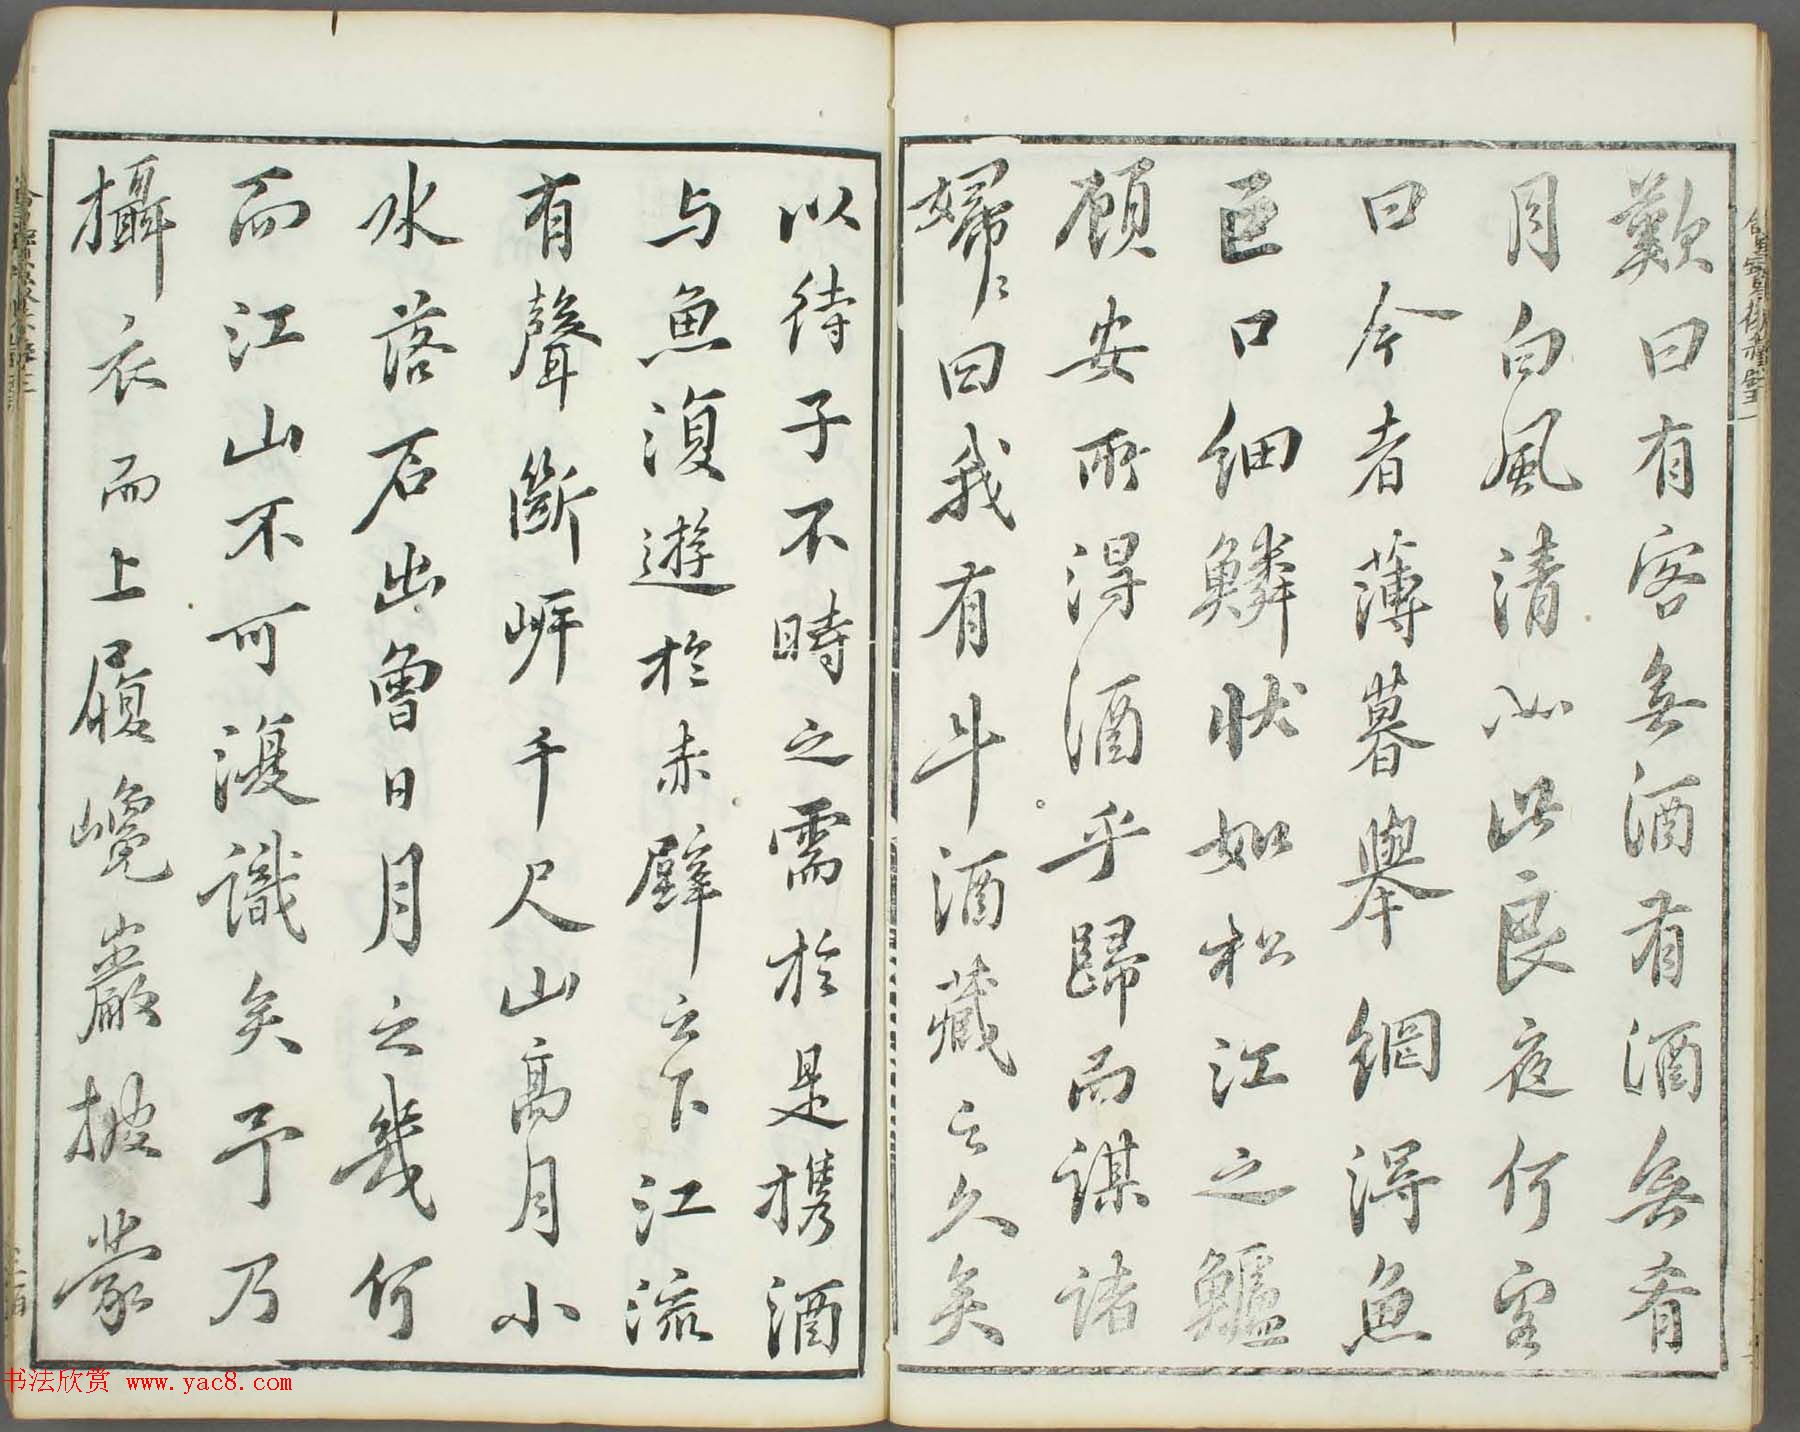 歎曰有客無酒有酒無肴
月白風清如此良夜何客
曰今者薄暮舉網得魚
巨口細鱗狀如松江之鱸
顧安所得酒乎歸而謀諸
婦〻曰我有斗酒藏之久矣
以待子不時之需於是携酒
与魚復遊於赤壁之下江流
有聲斷岸千尺山高月小
水落石出曾日月之幾何
而江山不可復識矣予乃
攝衣而上履巉巖披蒙
书法欣赏 www.yac8.com